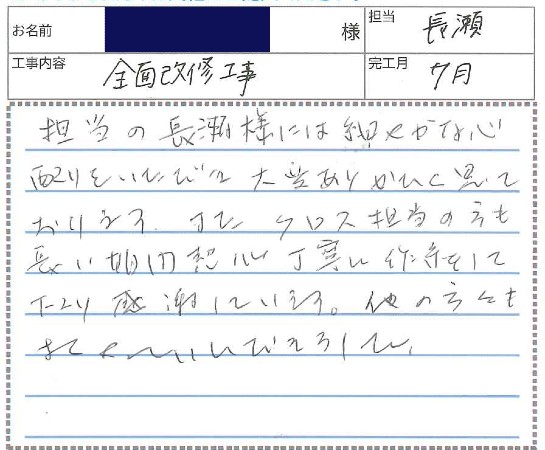 お名前 様 担当 長瀬
工事内容 全面改修工事 完工月 7月
担当の長瀬様には細やかな心
配りをいただき大変ありがたく思って
おります。また クロス担当の方も
長い期間 丁寧に作業をして
下さり感謝しています。他の方々も